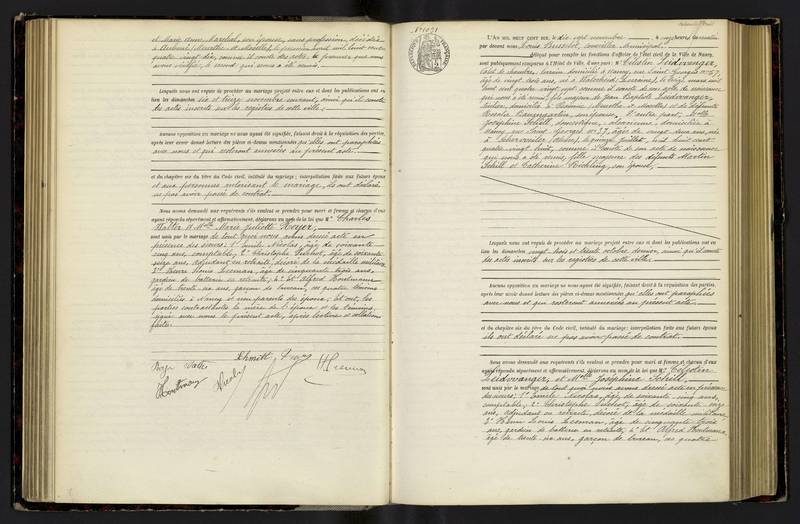 et Marie Anne Marchal, son épouse, sans profession, décédée
à
quatre vingt dix, comme il conste des actes, le premier que nous
avons vérifié, le second qui nous a été remis.
Lesquels nous ont requis de procéder au mariage projeté entre eux et dont les publications ont eu
lieu les dimanches dix et novembre courant, ainsi qu'il conste
des actes inscrits sur les registres de cette ville.
Aucune opposition au mariage ne nous ayant été signifiée, faisant droit à la réquisition des parties,
après leur avoir donné lecture des pièces ci-dessus mentionnées qu'elles ont paraphées
avec nous et qui resteront annexées au présent acte
et du chapitre six du titre du Code civil, intitulé du mariage; interpellation faite aux futurs époux
et aux personnes autorisant le mariage, ils ont déclaré
ne pas avoir passé de contrat.
Nous avons demandé aux requérants s'ils veulent se prendre pour mari et femme et chacun d'eux
ayant répondu séparément et affirmativement, déclarons au nom de la loi que Mr Charles
et Melle Marie Juliette Royer,
sont unis par le mariage de tout quoi nous avons dressé acte en
présence des sieurs: 1° Emile Nicolas, âgé de soixante
cinq ans, comptable, 2° Christophe, âgé de soixante
onze ans, adjudant en retraite, décoré de la médaille militaire
3° Pierre Louis, âgé de cinquante trois ans,
gardien de batterie en retraite; 4° et Alfred
âgé de trente un ans, garçon de bureau, ces quatre témoins
domiciliés à Nancy et non parents des époux; et ont, les
parties contractantes la mère de l'époux et les témoins,
signé avec nous le présent acte, après lecture et collation
faites.
N° 1021
L'AN MIL NEUF CENT DIX, le dix-sept novembre, à heures du matin
par devant nous, Louis, Conseiller Municipal,
délégué pour remplir les fonctions d'officier de l'état civil de la Ville de Nancy,
sont publiquement comparus à l'Hôtel de Ville, d'une part: Mr Célestin
valet de chambre, domicilié à Nancy, rue Saint Georges n° 57,
âgé de vingt trois ans, né à
cent quatre vingt sept comme il conste de son acte de naissance
qui nous a été remis, fils majeur de Jean Baptiste
domicilié à (Meurthe et Moselle) et de défunte
Rosalie Baumgarten, son épouse; D'autre part: Melle
Joséphine Schill, domestique, domiciliée à
Nancy, rue Saint Georges n° 57, âgée de vingt deux ans, née
à Scherwiller, le quinze juillet mil huit cent
quatre vingt huit, comme il conste de son acte de naissance
qui nous a été remis, fille majeure des défunts Martin
Schill et Catherine, son épouse;
Lesquels nous ont requis de procéder au mariage projeté entre eux et dont les publications ont eu
lieu les dimanches vingt trois et trente octobre dernier, ainsi qu'il conste
des actes inscrits sur les registres de cette ville.
Aucune opposition au mariage ne nous ayant été signifiée, faisant droit à la réquisition des parties,
après leur avoir donné lecture des pièces ci-dessus mentionnées qu'elles ont paraphées
avec nous et qui resteront annexées au présent acte
et du chapitre six du titre du Code civil, intitulé du mariage; interpellation faite aux futurs époux
ils ont déclaré ne pas avoir passé de contrat.
Nous avons demandé aux requérants s'ils veulent se prendre pour mari et femme et chacun d'eux
ayant répondu séparément et affirmativement, déclarons au nom de la loi que Mr Célestin
et Melle Joséphine Schill,
sont unis par le mariage de tout quoi nous avons dressé acte en présence
des sieurs: 1° Emile Nicolas, âgé de soixante cinq ans,
comptable, 2° Christophe, âgé de soixante onze
ans, adjudant en retraite, décoré de la médaille militaire
3° Pierre Louis, âgé de cinquante trois
ans, gardien de batterie en retraite; 4° et Alfred
âgé de trente un ans, garçon de bureau, ces quatre